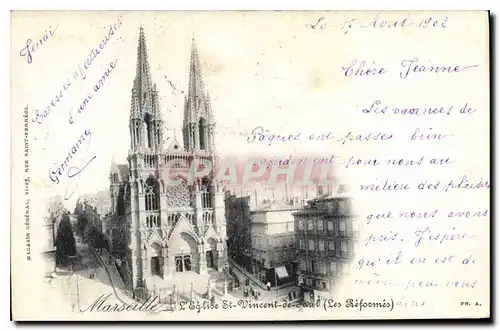 Le 17 Août 1902
Jeudi
Chère Jeanne
Caresses et
d'une amie
Germaine
Les vacances de
Pâques ont passée bien
rapidement pour nous au
milieu des plaisirs
que nous avons
pris. J'espère
qu'il en est de
même pour vous
MAGASIN GÉNÉRAL, 21-23, RUE SAINT-FERRÉOL
CPARAMA
Marseille L'Eglise St-Vincent-de-Paul (Les Réformés)
PH. A.